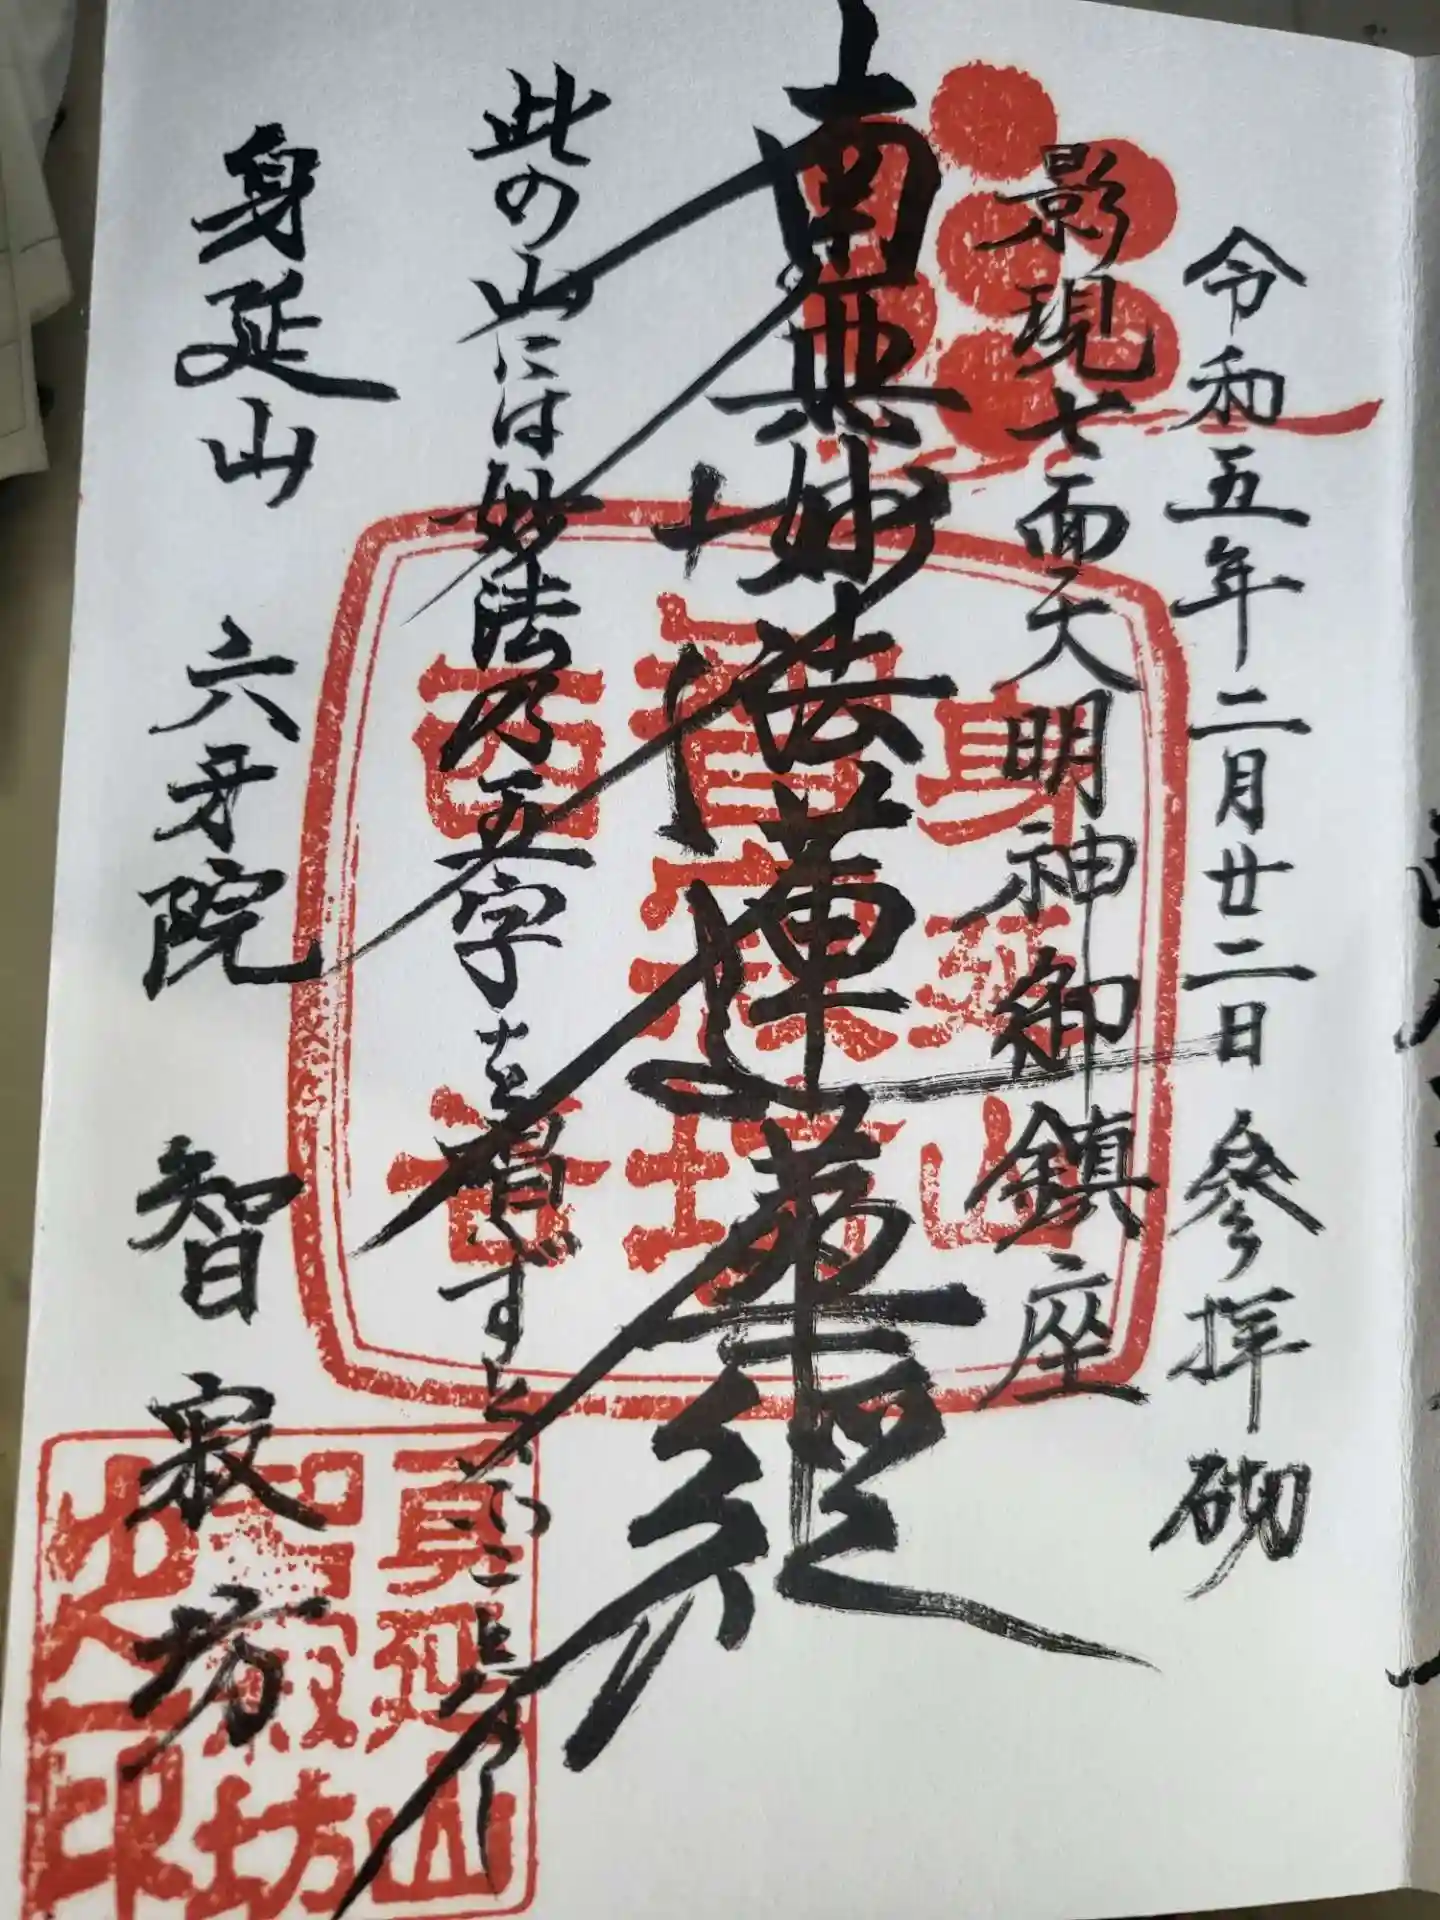 令和五年二月廿二日 参拝砌
影現七面大明神御鎮座
南無妙法蓮華経
此の山には妙法乃五字を
身延山 六牙院 智寂坊
身延山
智寂坊
身延山
智寂坊
之印